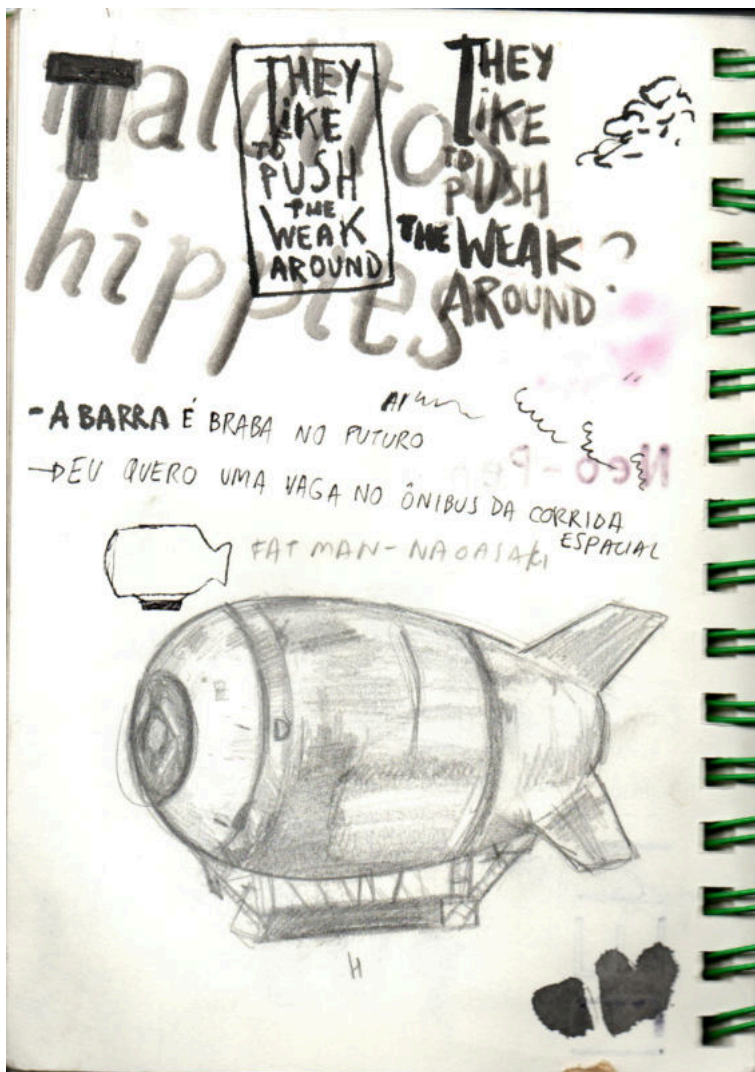 Malditos
hippies?
THEY
LIKE
TO
PUSH
THE
WEAK
AROUND
THEY
LIKE
TO
PUSH
THE WEAK
AROUND
- A BARRA É BRABA NO FUTURO
→ EU QUERO UMA VAGA NO ÔNIBUS DA CORRIDA
ESPACIAL
FAT MAN - NAGASAKI
H